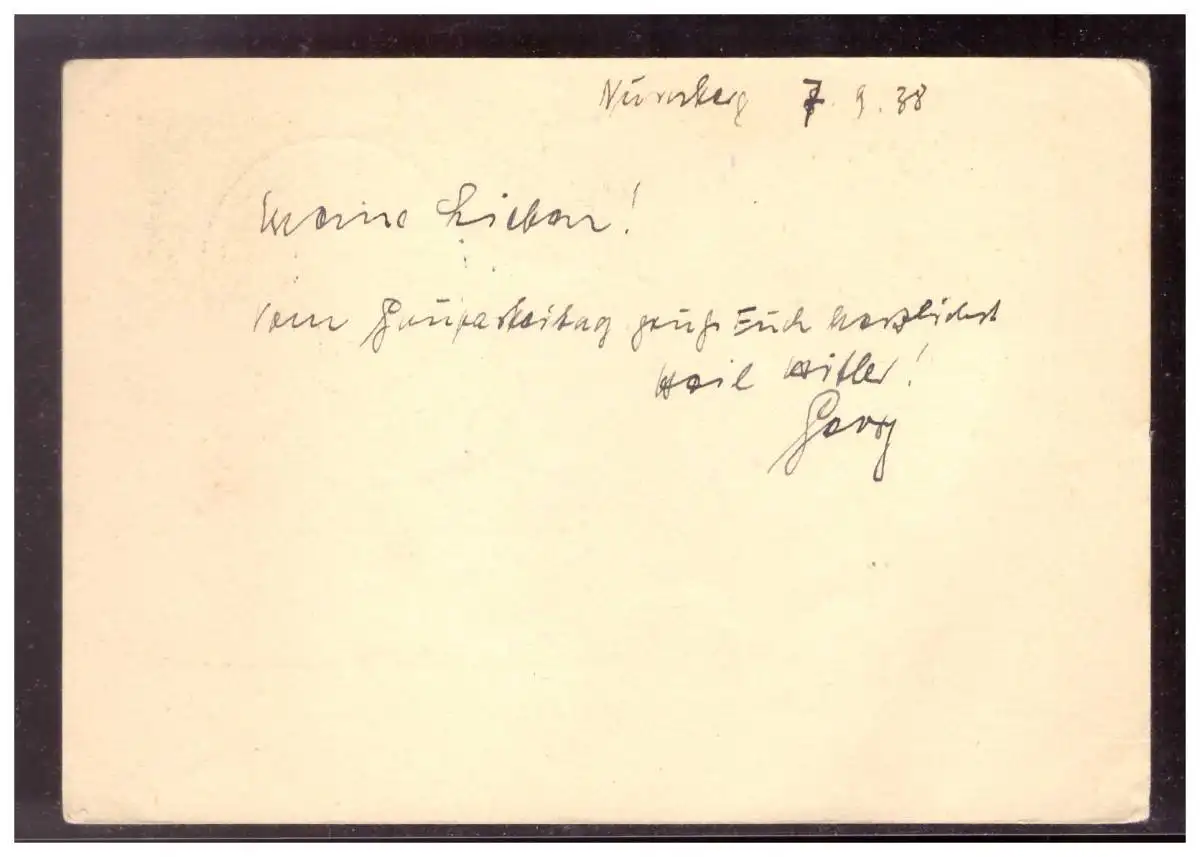 Nürnberg 7. 9. 38
Meine Lieben!
Vom Gauparteitag grüßt Euch herzlichst
Heil Hitler!
Georg